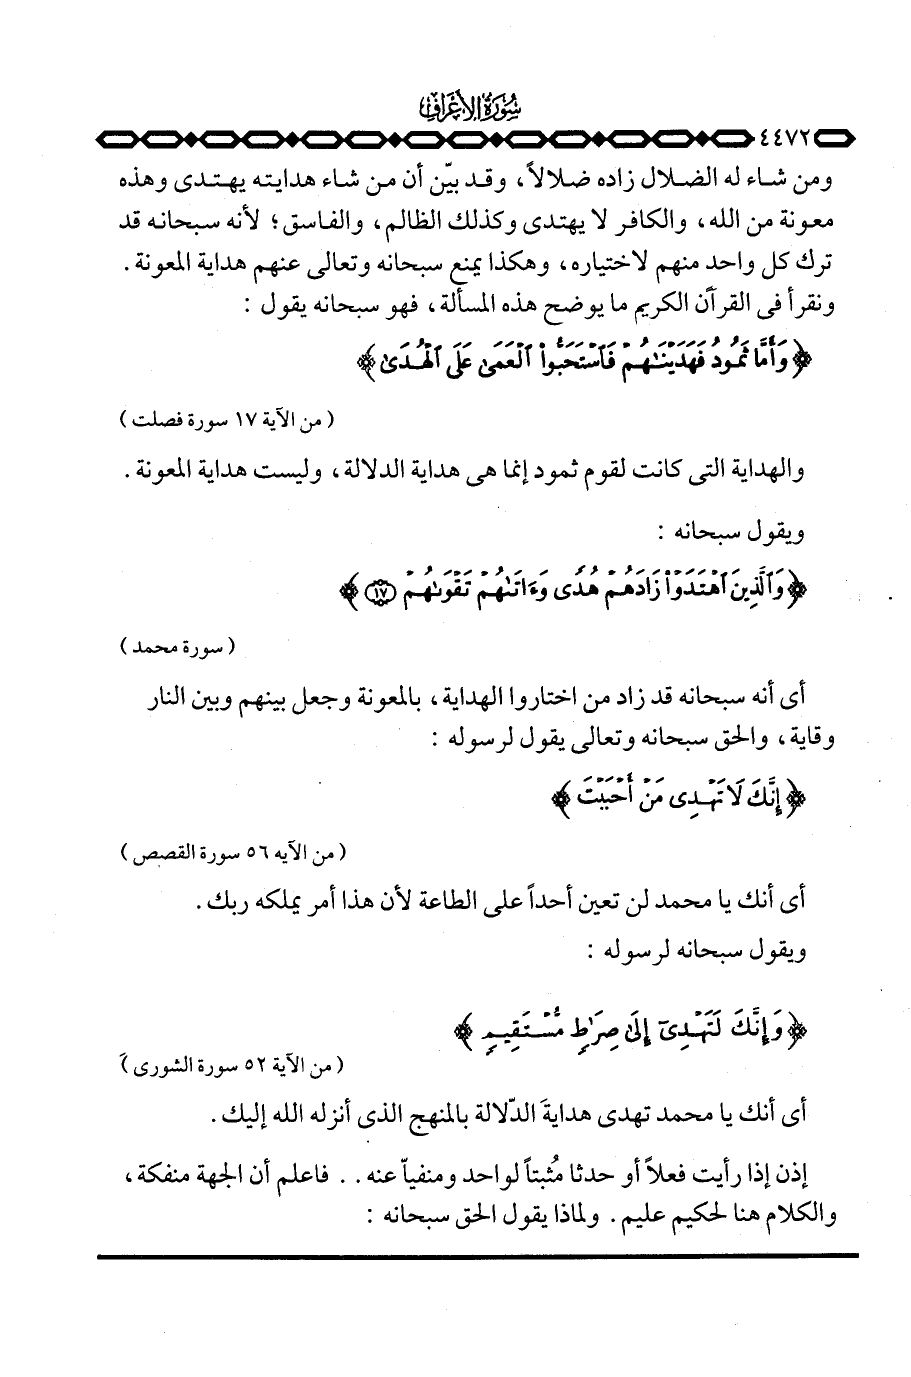 سُورَةُ الأَعْرَافِ
٤٤٧٢
ومن شاء له الضلال زاده ضلالاً، وقد بيّن أن من شاء هدايته يهتدى وهذه
معونة من الله، والكافر لا يهتدى وكذلك الظالم، والفاسق؛ لأنه سبحانه قد
ترك كل واحد منهم لاختياره، وهكذا يمنع سبحانه وتعالى عنهم هداية المعونة.
ونقرأ فى القرآن الكريم ما يوضح هذه المسألة، فهو سبحانه يقول :
﴿ وَأَمَّا ثَمُودُ فَهَدَيْنَٰهُمْ فَٱسْتَحَبُّوا۟ ٱلْعَمَىٰ عَلَى ٱلْهُدَىٰ ﴾
( من الآية ١٧ سورة فصلت )
والهداية التى كانت لقوم ثمود إنما هى هداية الدلالة، وليست هداية المعونة.
ويقول سبحانه :
﴿ وَٱلَّذِينَ ٱهْتَدَوْا۟ زَادَهُمْ هُدًى وَءَاتَىٰهُمْ تَقْوَىٰهُمْ ١٧ ﴾
( سورة محمد )
أى أنه سبحانه قد زاد من اختاروا الهداية، بالمعونة وجعل بينهم وبين النار
وقاية، والحق سبحانه وتعالى يقول لرسوله :
﴿ إِنَّكَ لَا تَهْدِى مَنْ أَحْبَبْتَ ﴾
( من الآيه ٥٦ سورة القصص )
أى أنك يا محمد لن تعين أحداً على الطاعة لأن هذا أمر يملكه ربك.
ويقول سبحانه لرسوله :
﴿ وَإِنَّكَ لَتَهْدِىٓ إِلَىٰ صِرَٰطٍ مُّسْتَقِيمٍ ﴾
( من الآية ٥٢ سورة الشورى )
أى أنك يا محمد تهدى هدايةَ الدّلالة بالمنهج الذى أنزله الله إليك.
إذن إذا رأيت فعلاً أو حدثا مُثبتاً لواحد ومنفياّ عنه . . فاعلم أن الجهة منفكة،
والكلام هنا لحكيم عليم. ولماذا يقول الحق سبحانه :